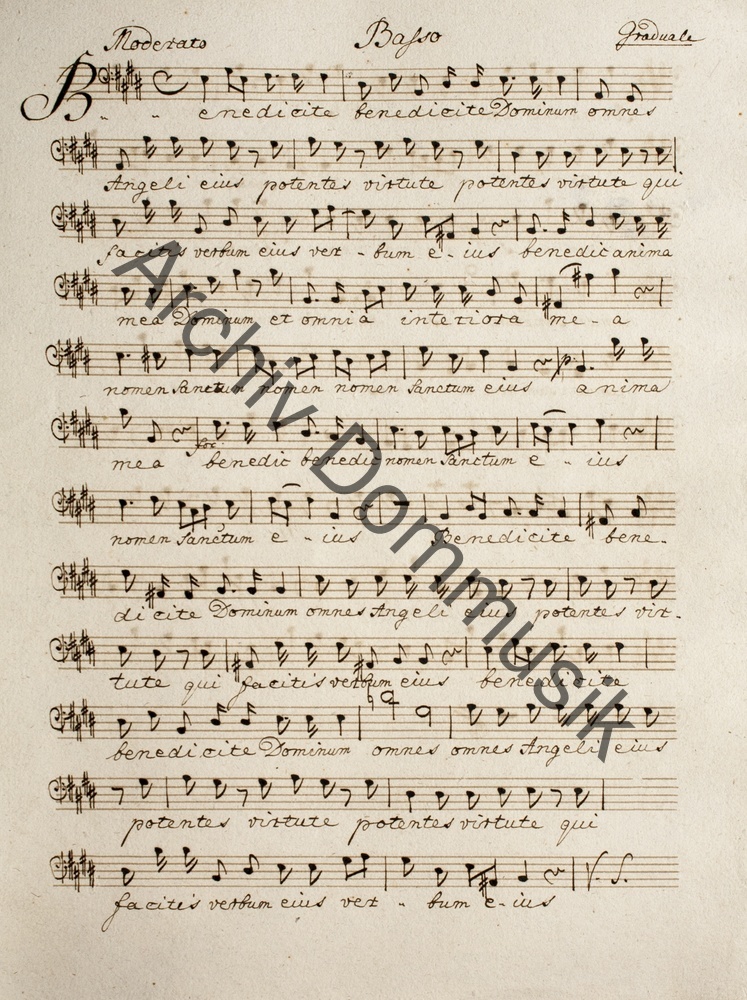 Moderato Basso Graduale
Benedicite benedicite Dominum omnes
Angeli eius potentes virtute potentes virtute qui
facitis verbum eius ver - bum e - ius benedic anima
mea Dominum et omnia interiora me - a
nomen Sanctum nomen nomen Sanctum eius p: anima
mea for: benedic benedic nomen Sanctum e - ius
nomen Sanctum e - ius Benedicite bene-
dicite Dominum omnes Angeli eius potentes vir-
tute qui facitis verbum eius benedicite
benedicite Dominum omnes omnes Angeli eius
potentes virtute potentes virtute qui
facitis verbum eius ver - bum e - ius V. S.
Archiv Dommusik